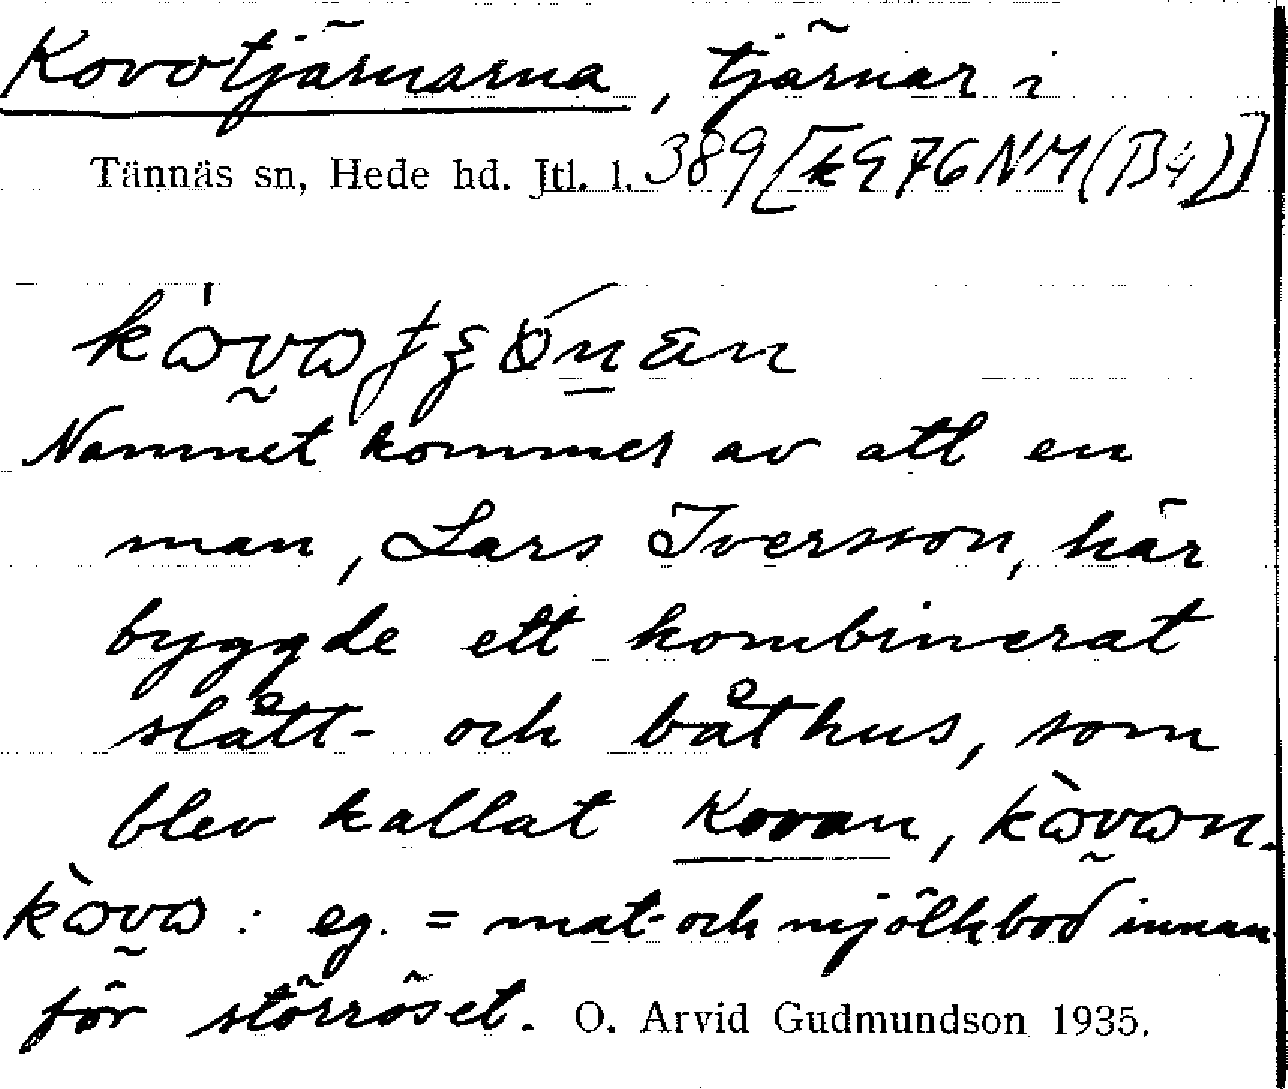 Kovotjärnarna, tjärnar i
Tännäs sn, Hede hd. Jtl. l. 389 [k976NM(B4)]
Namnet kommer av att en
man, Lars Iversson, här
byggde ett kombinerat
slått- och båthus, som
blev kallat Kovan,
: eg. = mat- och mjölkbod innan
för störröset. O. Arvid Gudmundson 1935.